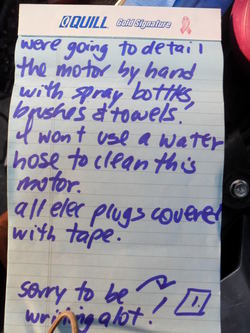 QUILL Gold Signature
were going to detail
the motor by hand
with spray bottles,
brushes & towels.
I won't use a water
hose to clean this
motor.
all elec plugs covered
with tape.
sorry to be
writing alot!